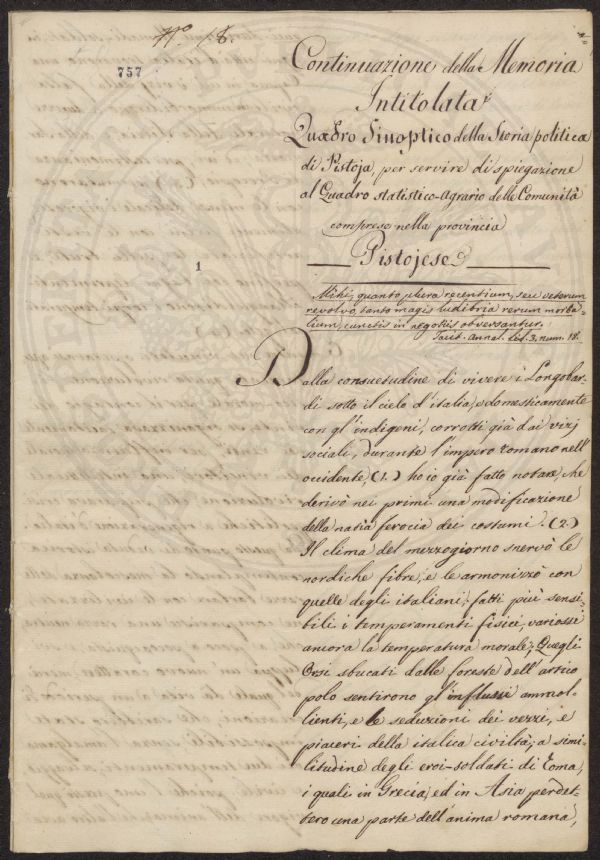 Nº 18.
757
Continuazione della Memoria
Intitolata
Quadro Sinoptico della Storia politica
di Pistoja, per servire di spiegazione
al Quadro statistico-agrario delle Comunità
comprese nella provincia
Pistojese
1
Mihi, quanto plura recentium, seu veterum
revolvo, tanto magis ludibria rerum morta-
lium, cunctis in negotiis obversantur.
Tacit. Annal. Lib. 3, num. 18.
Dalla consuetudine di vivere i Longobar-
di sotto il cielo d'italia, e domesticamente
con gl'indigeni, corrotti già dai vizj
sociali, durante l'impero romano nell'
occidente (1.) ho io già fatto notare, che
derivò nei primi una modificazione
della natia ferocia dei costumi. (2.)
Il clima del mezzogiorno snervò le
nordiche fibre, e le armonizzò con
quelle degli italiani; fatti più sensi-
bili i temperamenti fisici, variossi
ancora la temperatura morale; Quegli
Orsi sbucati dalle foreste dell'artico
polo sentirono gl'influssi ammol-
lienti, e le seduzioni dei vezzi, e
piaceri della italica civiltà; a simi-
litudine degli eroi-soldati di Roma,
i quali in Grecia, ed in Asia perdet-
tero una parte dell'anima romana,